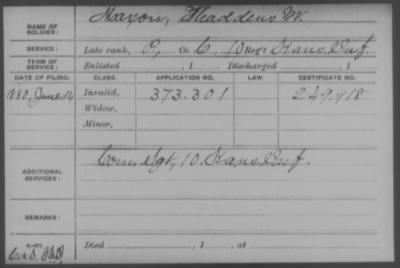 NAME OF SOLDIER: Maxon, Thaddeus W.
SERVICE: Late rank, P, Co. C, 10 Reg't Kans. Inf.
TERM OF SERVICE: Enlisted , 1 Discharged , 1
DATE OF FILING. CLASS. APPLICATION NO. LAW. CERTIFICATE NO.
1880, June 14 Invalid, 373.301 249.418
Widow,
Minor,
ADDITIONAL SERVICES: Com Sgt, 10 Kans. Inf.
REMARKS:
Died , 1 , at